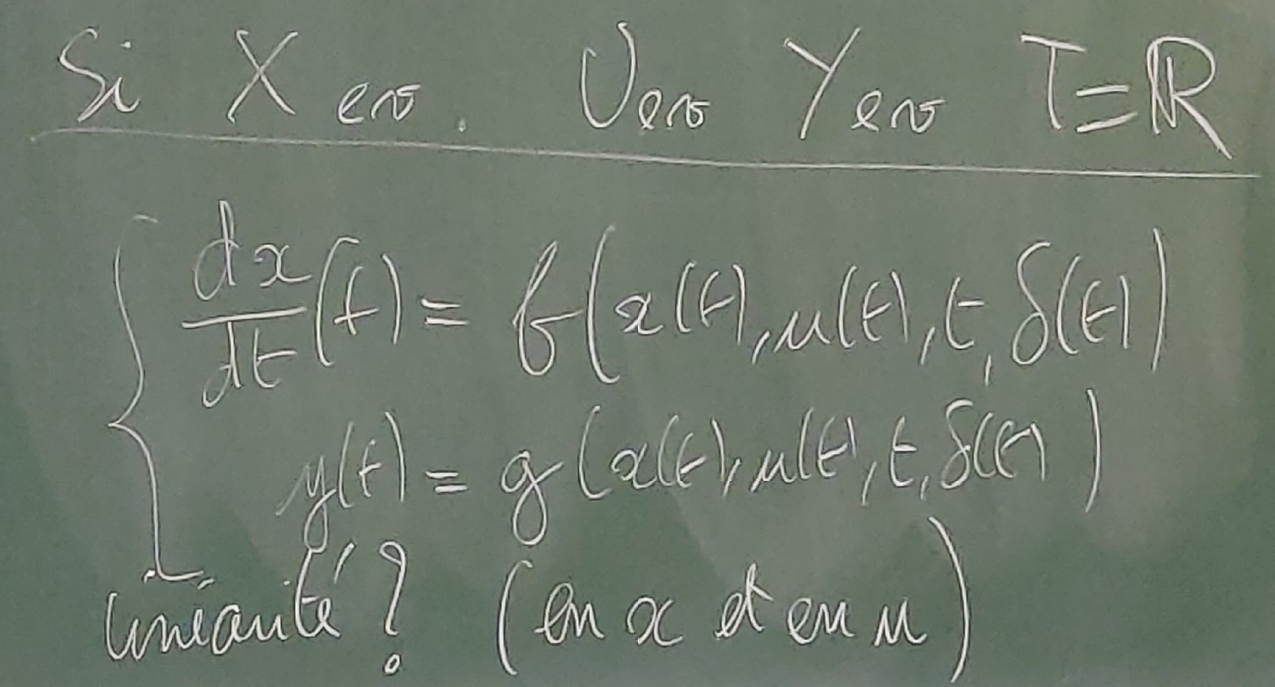 Si X ev. U ev Y ev T=ℝ
dx/dt(t) = f(x(t), u(t), t, δ(t))
y(t) = g(x(t), u(t), t, δ(t))
linéarité? (en x et en u)